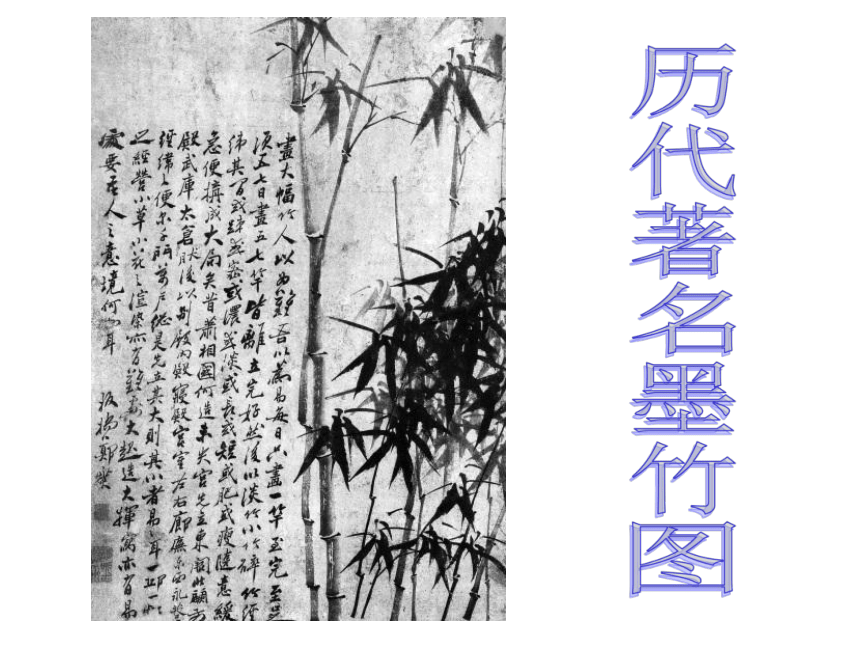 历代著名墨竹图
畫大幅竹人以為難吾以為易每日只畫一竿至完至足
須五七日畫五七竿皆離立完好然後以淡竹小竹碎竹經
緯其間或疎或密或濃或淡或長或短或肥或瘦隨意緩
急便搆成大局矣昔蕭相國何造未央宮先立東闕北闕前
殿武庫太倉然後以別殿內殿寢殿宮室左右廊廡東西永巷
經緯之便尔千門萬戶總是先立其大則其小者易易耳一邱一壑
之經營小草小花之渲染亦有難處大起造大揮寫亦有易
處要在人之意境何如耳 板橋鄭燮